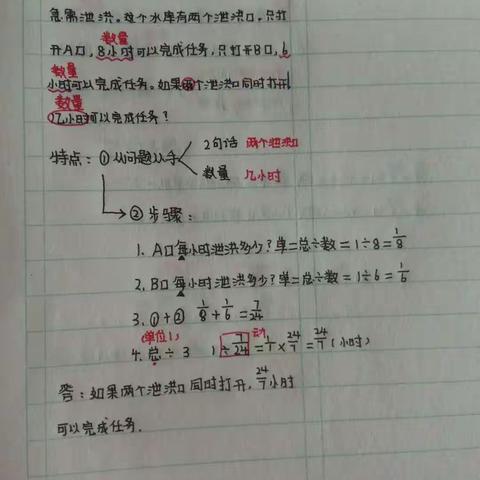 急需泄洪。这个水库有两个泄洪口，只打
数量
开A口，8小时可以完成任务，只打开B口，6
数量
小时可以完成任务。如果两个泄洪口同时打开
数量
几小时可以完成任务？
2句话 两个泄洪口
特点：① 从问题从手
数量 几小时
② 步骤：
1. A口每小时泄洪多少？单=总÷数=1÷8=1/8
2. B口每小时泄洪多少？单=总÷数=1÷6=1/6
3. ①+② 1/8+1/6=7/24
(单位1)
4. 总÷3 1÷7/24=1/1×24/7=24/7(小时)
答：如果两个泄洪口同时打开，24/7小时
可以完成任务.